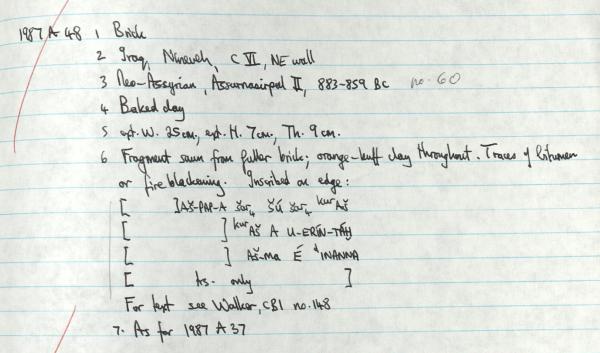 1987 A 48 1 Brick
2 Iraq, Nineveh, C VI, NE wall
3 Neo-Assyrian, Assurnasirpal II, 883-859 BC no. 60
4 Baked clay
5 ext. W. 25cm, ext. H. 7cm, Th. 9cm.
6 Fragment sawn from fuller brick; orange-buff clay throughout. Traces of bitumen
or fire blackening. Inscribed on edge:
[ ]AŠ-PAP-A šar₄ ŠÚ šar₄ ᵏᵘʳAŠ
[ ] ᵏᵘʳAŠ A U-ERÍN-TÁḪ
[ ] AŠ-ma É ᵈINANNA
[ tts. only ]
For text see Walker, CBI no. 148
7. As for 1987 A 37